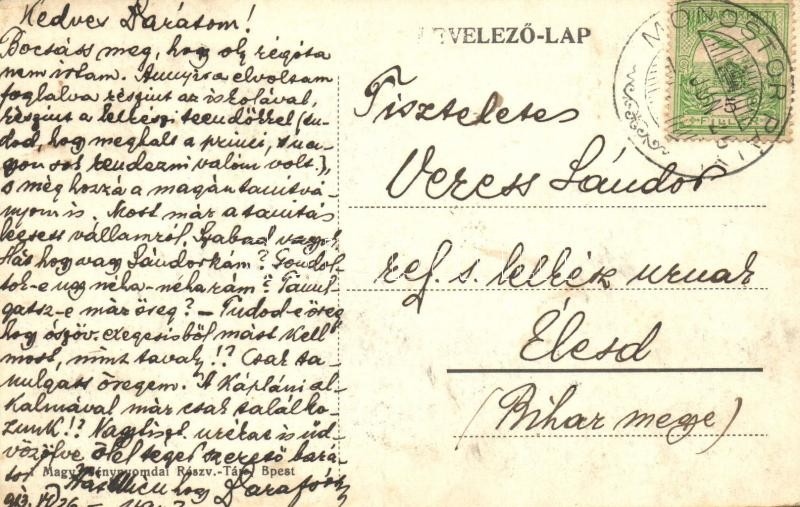 Kedves Barátom!
Bocsáss meg, hogy oly régóta
nem irtam. Annyira elvoltam
foglalva részint az iskolával,
részint a lelkészi teendőkkel (tu-
dod, hogy meghalt a princi, s na-
gyon sok rendezni valóm volt.),
s még hozzá a magántanitvá-
nyom is. Most már a tanitás
leesett vállamról. Szabad vagyok
Hát hogy vagy Sándorkám? Gondol-
tok-e úgy néha-néha rám? Tanul-
gatsz-e már öreg? — Tudod-e öreg
hogy ószöv. exegesisből mást kell
most, mint tavaly!? Csak ta-
nulgass öregem. A Kápláni al-
kalmával már csak találko-
zunk!? Nagytiszt. urékat is üd-
vözölve ölel téged szerető bará-
tod
Barafóthy
913. VI/26
Magy. Fénynyomdai Részv.-Társ. Bpest
LEVELEZŐ-LAP
MONOSTOR
FILLÉR
Tiszteletes
Veress Sándor
ref. s. lelkész urnak
Élesd
(Bihar megye)